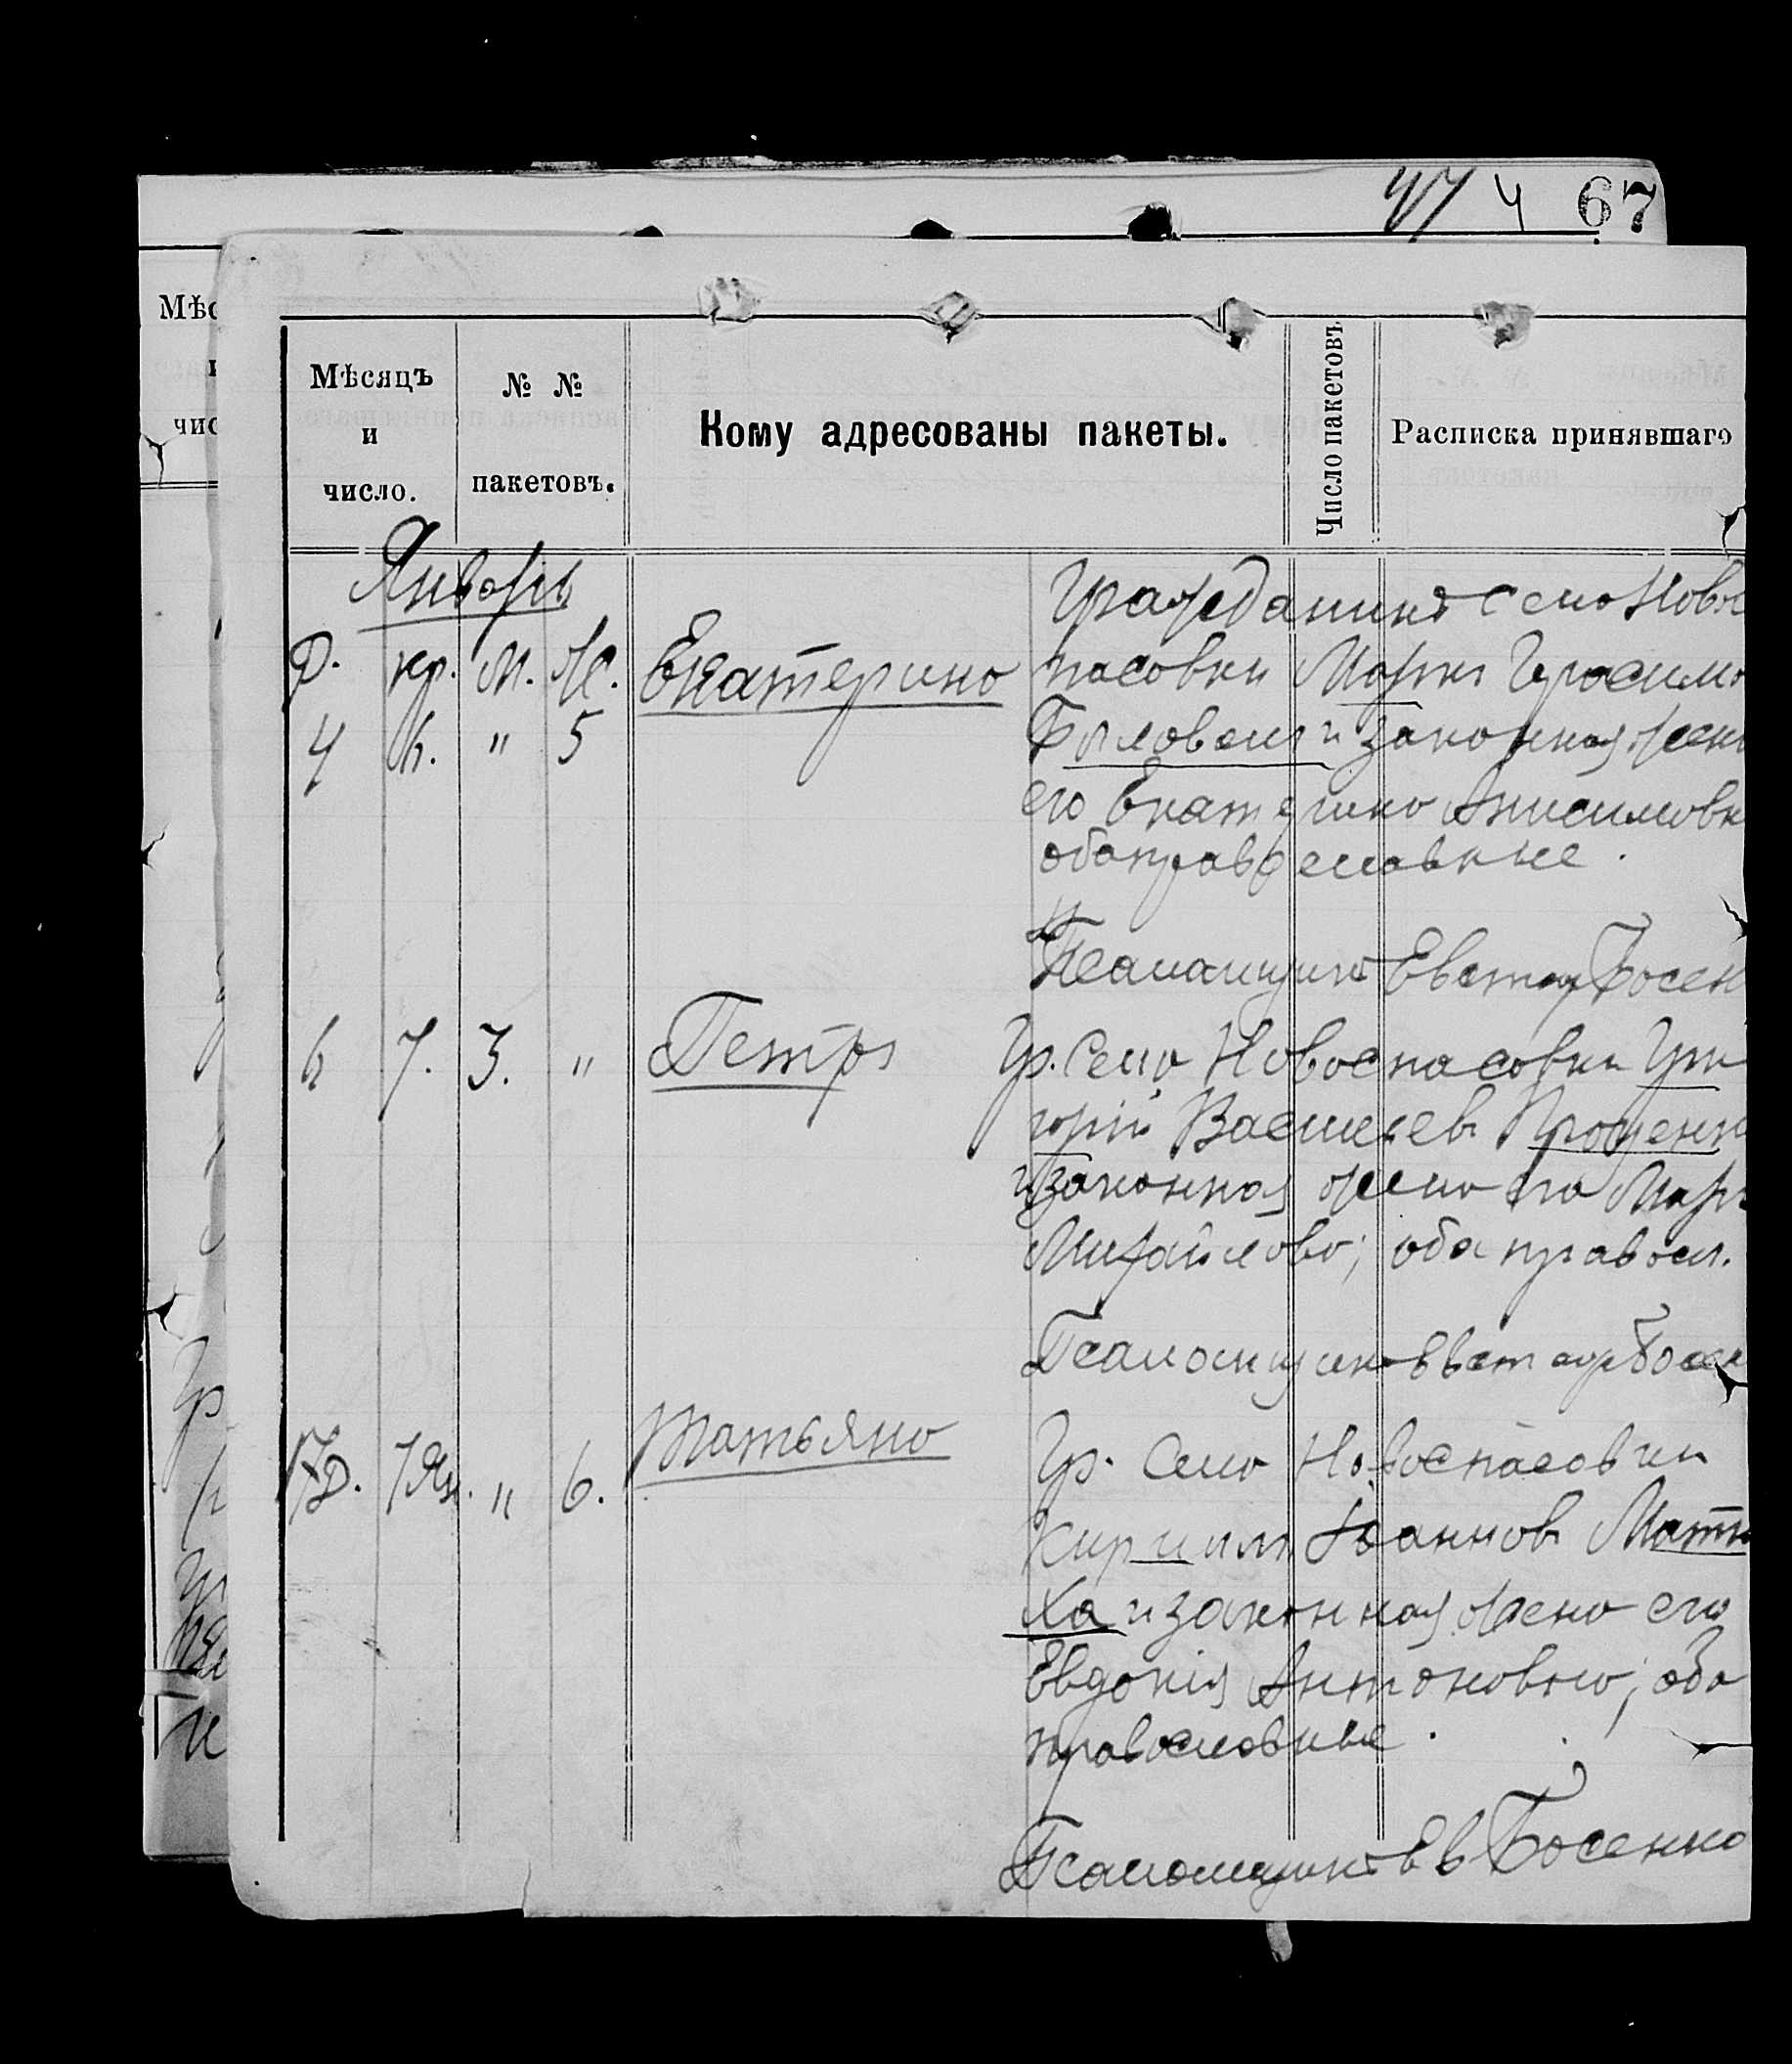 4 67
Мѣс
чис
Мѣсяцъ
и
число.
№ №
пакетовъ.
Кому адресованы пакеты.
Число пакетовъ
Расписка принявшаго
Январь
Р. кр. М. Ж.
4 6. " 5
Екатерина
Гражданинъ села Новос
пасовки
его Екатерина Анисимовн
оба православные.
Псаломщикъ Евстаф Босен
6 7. 3. "
Петръ
Гр. села Новоспасовки Гри
горій Васильевъ Проценк
и законная жена его Мар
Михайлова; оба правосл.
Псаломщикъ Евстаф Босен
7 Ян. " 6.
Татьяна
Гр. села Новоспасовки
Кирилл Іоаннов Матю
ха и законная жена его
Евдокія Антоновна; оба
православные.
Псаломщикъ Ев Босенко